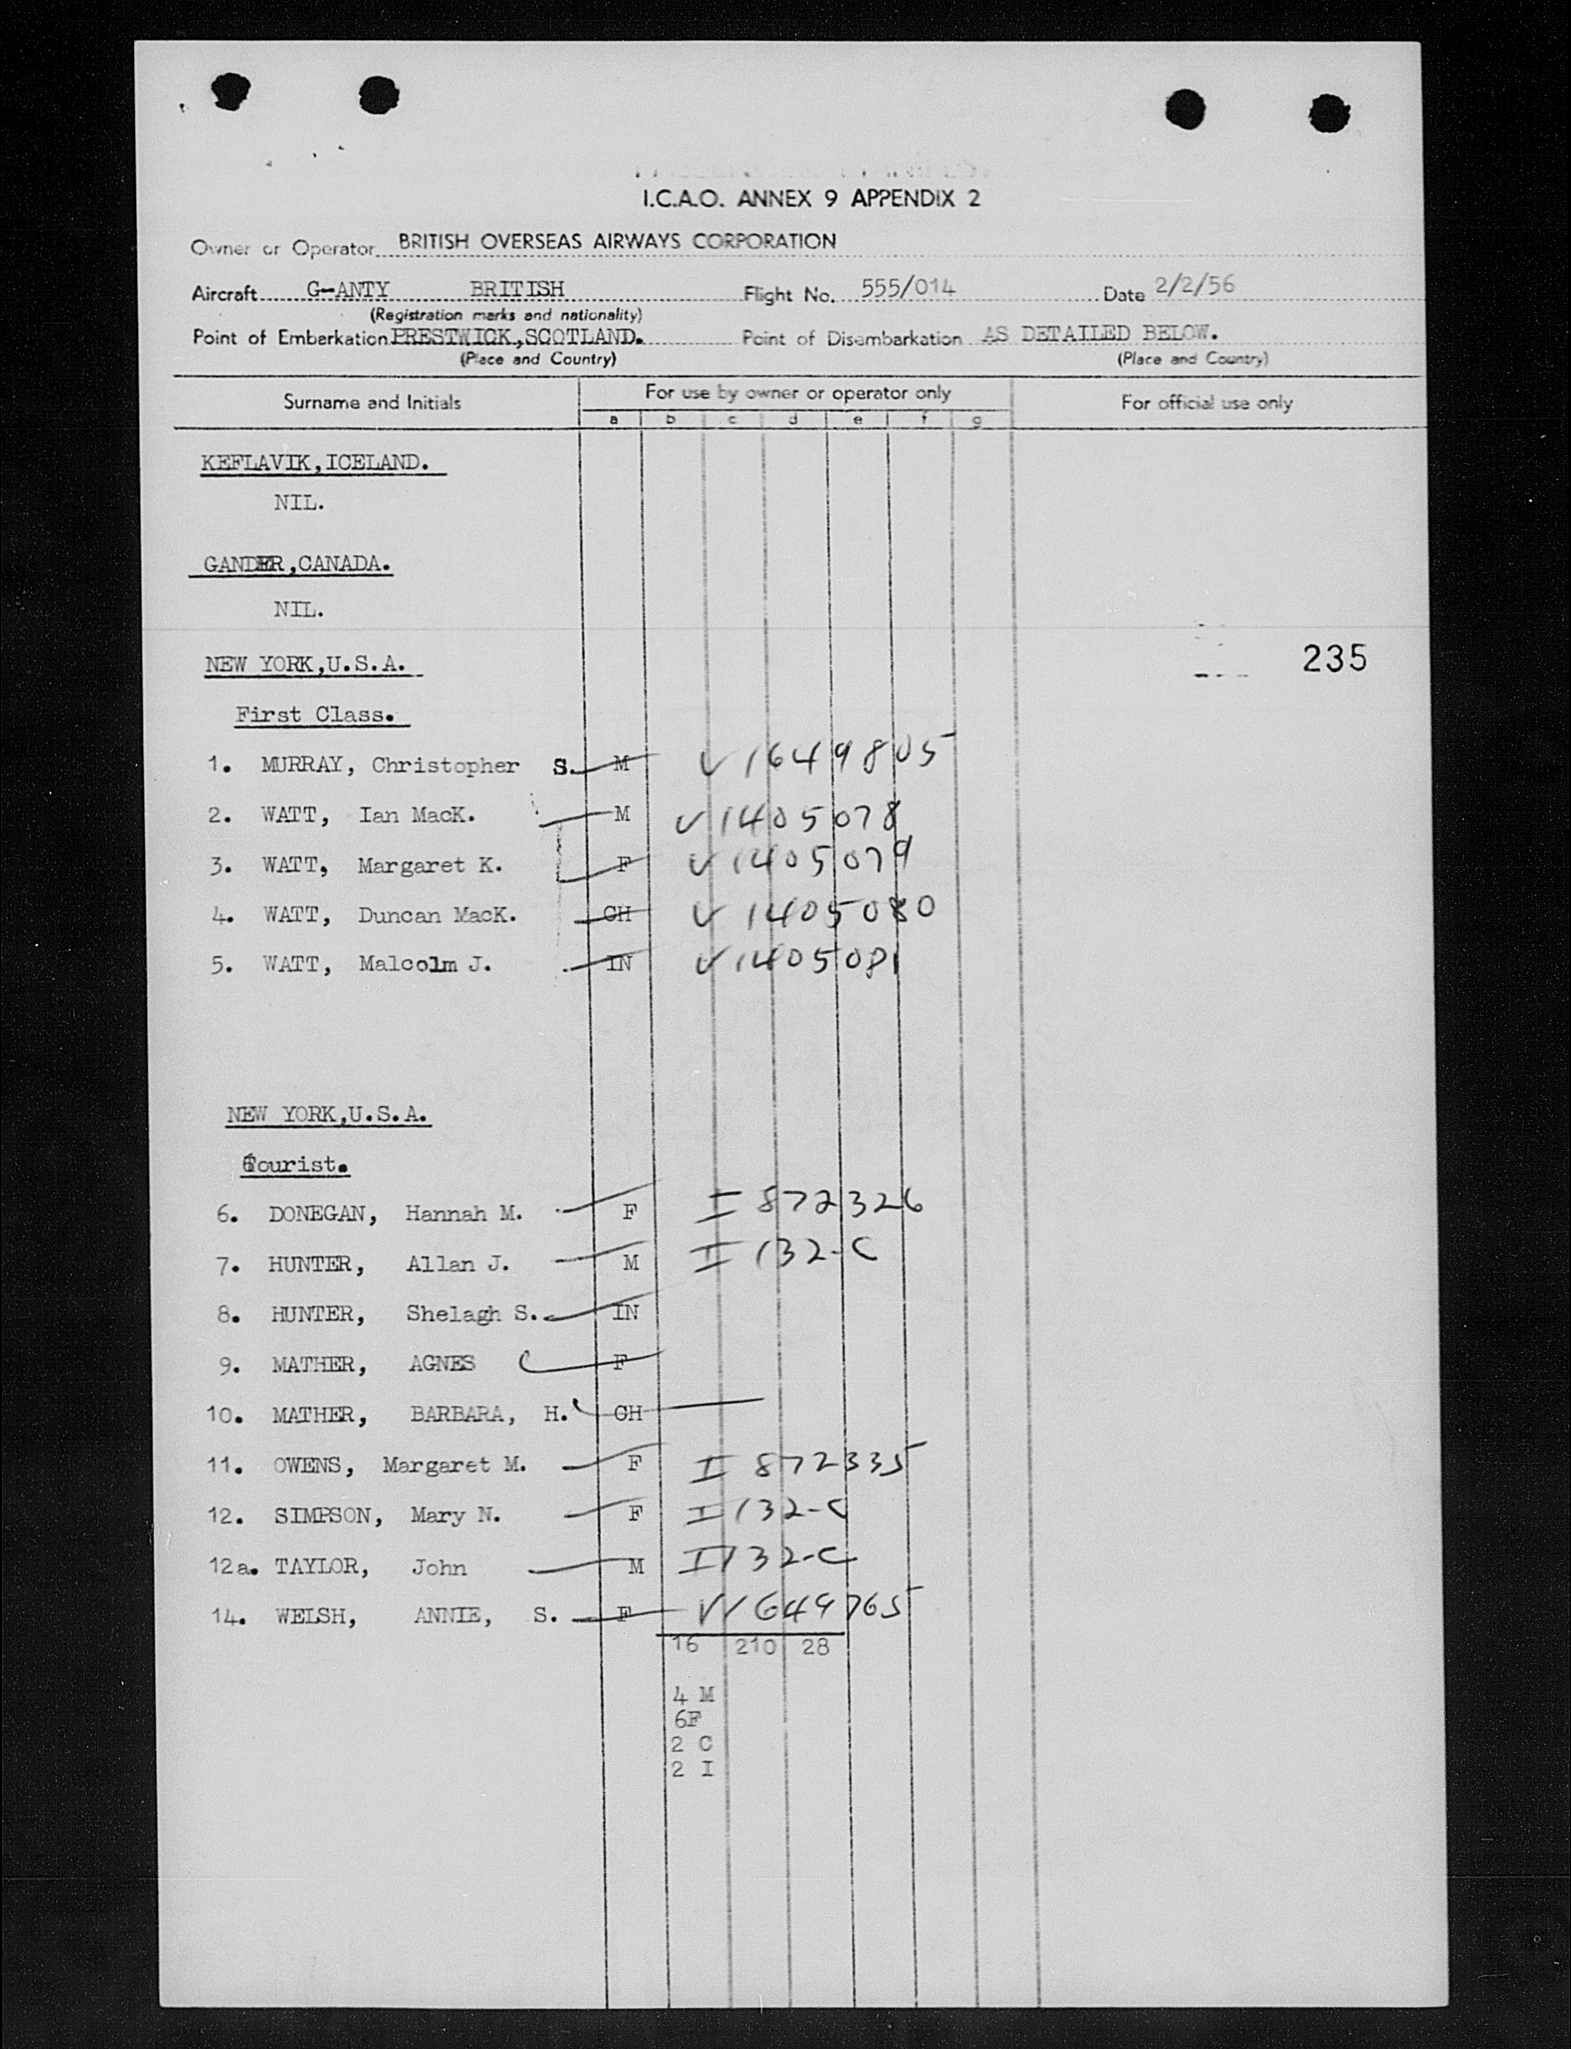 I.C.A.O. ANNEX 9 APPENDIX 2
Owner or Operator BRITISH OVERSEAS AIRWAYS CORPORATION
Aircraft G-ANTY BRITISH Flight No. 555/014 Date 2/2/56
(Registration marks and nationality)
Point of Embarkation PRESTWICK,SCOTLAND. Point of Disembarkation AS DETAILED BELOW.
(Place and Country) (Place and Country)
Surname and Initials For use by owner or operator only For official use only
a b c d e f g
KEFLAVIK,ICELAND.
NIL.
GANDER,CANADA.
NIL.
NEW YORK,U.S.A. 235
First Class.
1. MURRAY, Christopher S. M V 1649805
2. WATT, Ian MacK. M V 1405078
3. WATT, Margaret K. F V 1405079
4. WATT, Duncan MacK. CH V 1405080
5. WATT, Malcolm J. IN V 1405081
NEW YORK,U.S.A.
Tourist.
6. DONEGAN, Hannah M. F I 872326
7. HUNTER, Allan J. M I 132-C
8. HUNTER, Shelagh S. IN
9. MATHER, AGNES F
10. MATHER, BARBARA, H. CH
11. OWENS, Margaret M. F I 872335
12. SIMPSON, Mary N. F I 132-C
12a. TAYLOR, John M I 132-C
14. WELSH, ANNIE, S. F V 1649765
16 210 28
4 M
6F
2 C
2 I